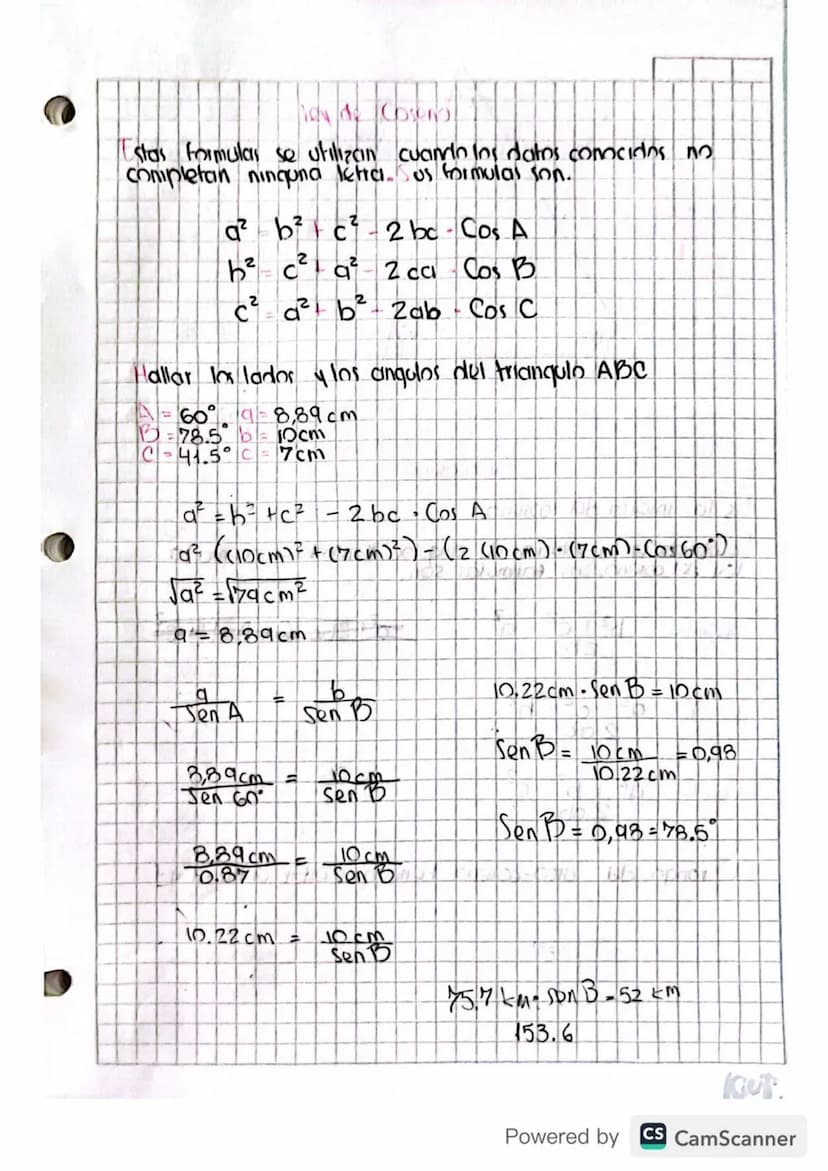 Ley de Coseno
Estas formulas se utilizan cuando los datos conocidos no
completan ninguna letra. Sus formulas son.
a² = b² + c² - 2bc · Cos A
b² = c² + a² - 2ca · Cos B
c² = a² + b² - 2ab · Cos C
Hallar los lados y los angulos del triangulo ABC
A = 60° a = 8,89cm
B = 78.5° b = 10cm
C = 41.5° c = 7cm
a² = b² + c² - 2bc · Cos A
a² ((10cm)² + (7cm)²) - (2 (10cm) · (7cm) - Cos 60°)
√a² = √79cm²
a = 8,89cm
a/Sen A = b/Sen B
8,89cm/Sen 60° = 10cm/Sen B
8,89cm/0.87 = 10cm/Sen B
10.22cm = 10cm/Sen B
10.22cm · Sen B = 10cm
Sen B = 10cm/10.22cm = 0,98
Sen B = 0,98 = 78.5°
75.7 km · sen B = 52 km
153.6
Powered by CS CamScanner